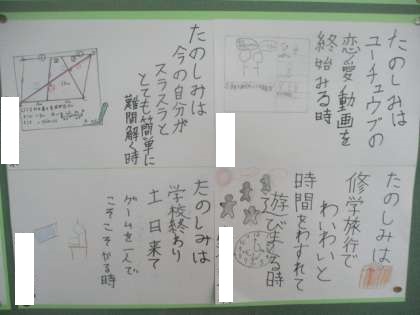 たのしみは
ユーチュウブの
恋愛動画を
終始みる時
たのしみは
今の自分が
スラスラと
とても簡単に
難問解く時
たのしみは
修学旅行で
わいわいと
時間をわすれて
遊びまくる時
たのしみは
学校終わり
土日来て
ゲームを一人で
こそこそやる時